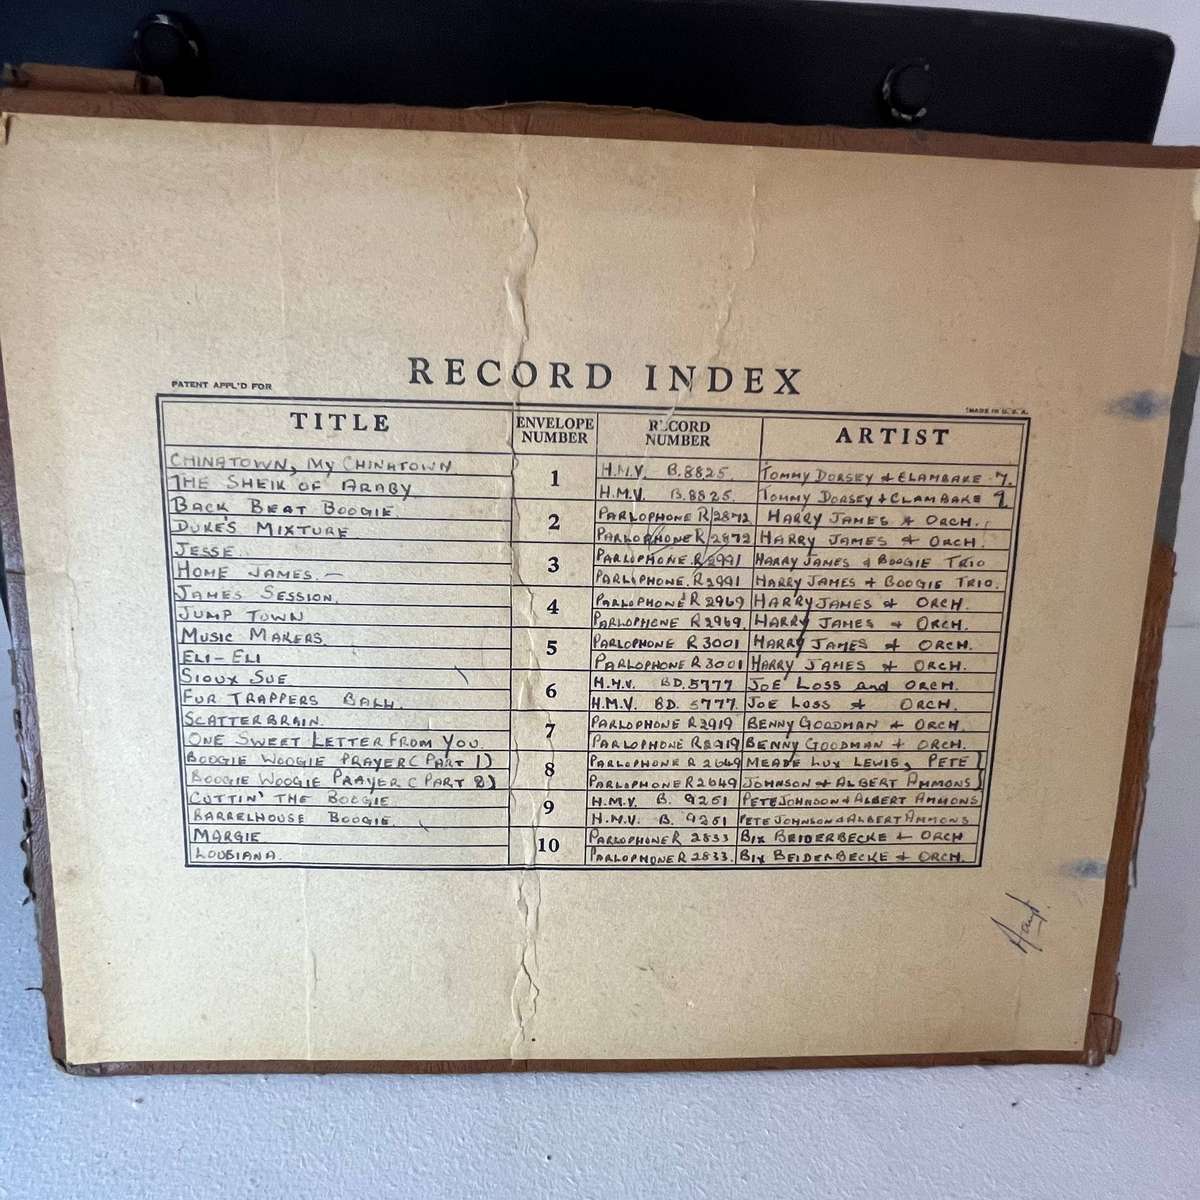 RECORD INDEX
PATENT APPL'D FOR
MADE IN U.S.A.
TITLE ENVELOPE NUMBER RECORD NUMBER ARTIST
CHINATOWN, MY CHINATOWN 1 H.M.V. B.8825. TOMMY DORSEY & CLAMBAKE 7.
THE SHEIK OF ARABY H.M.V. B.8825. TOMMY DORSEY & CLAMBAKE 7
BACK BEAT BOOGIE. 2 PARLOPHONE R/2872 HARRY JAMES & ORCH.
DUKE'S MIXTURE PARLOPHONE R/2872 HARRY JAMES & ORCH.
JESSE 3 PARLOPHONE. R2991 HARRY JAMES & BOOGIE TRIO
HOME JAMES. — PARLOPHONE. R2991 HARRY JAMES & BOOGIE TRIO.
JAMES SESSION. 4 PARLOPHONE R 2969 HARRY JAMES & ORCH.
JUMP TOWN PARLOPHONE R 2969. HARRY JAMES & ORCH.
MUSIC MAKERS. 5 PARLOPHONE R 3001 HARRY JAMES & ORCH.
ELI-ELI PARLOPHONE R 3001 HARRY JAMES & ORCH.
SIOUX SUE 6 H.M.V. BD.5777 JOE LOSS and ORCH.
FUR TRAPPERS BALL. H.M.V. BD. 5777. JOE LOSS & ORCH.
SCATTERBRAIN. 7 PARLOPHONE R2919 BENNY GOODMAN & ORCH.
ONE SWEET LETTER FROM YOU. PARLOPHONE R2919 BENNY GOODMAN & ORCH.
BOOGIE WOOGIE PRAYER (PART 1) 8 PARLOPHONE R 2649 MEADE LUX LEWIS, PETE }
BOOGIE WOOGIE PRAYER (PART 2) PARLOPHONE R2649 JOHNSON & ALBERT AMMONS }
CUTTIN' THE BOOGIE 9 H.M.V. B. 9261 PETE JOHNSON & ALBERT AMMONS
BARRELHOUSE BOOGIE. H.M.V. B. 9261 PETE JOHNSON & ALBERT AMMONS
MARGIE 10 PARLOPHONE R 2833 BIX BEIDERBECKE & ORCH
LOUSIANA. PARLOPHONE R 2833. BIX BEIDERBECKE & ORCH.